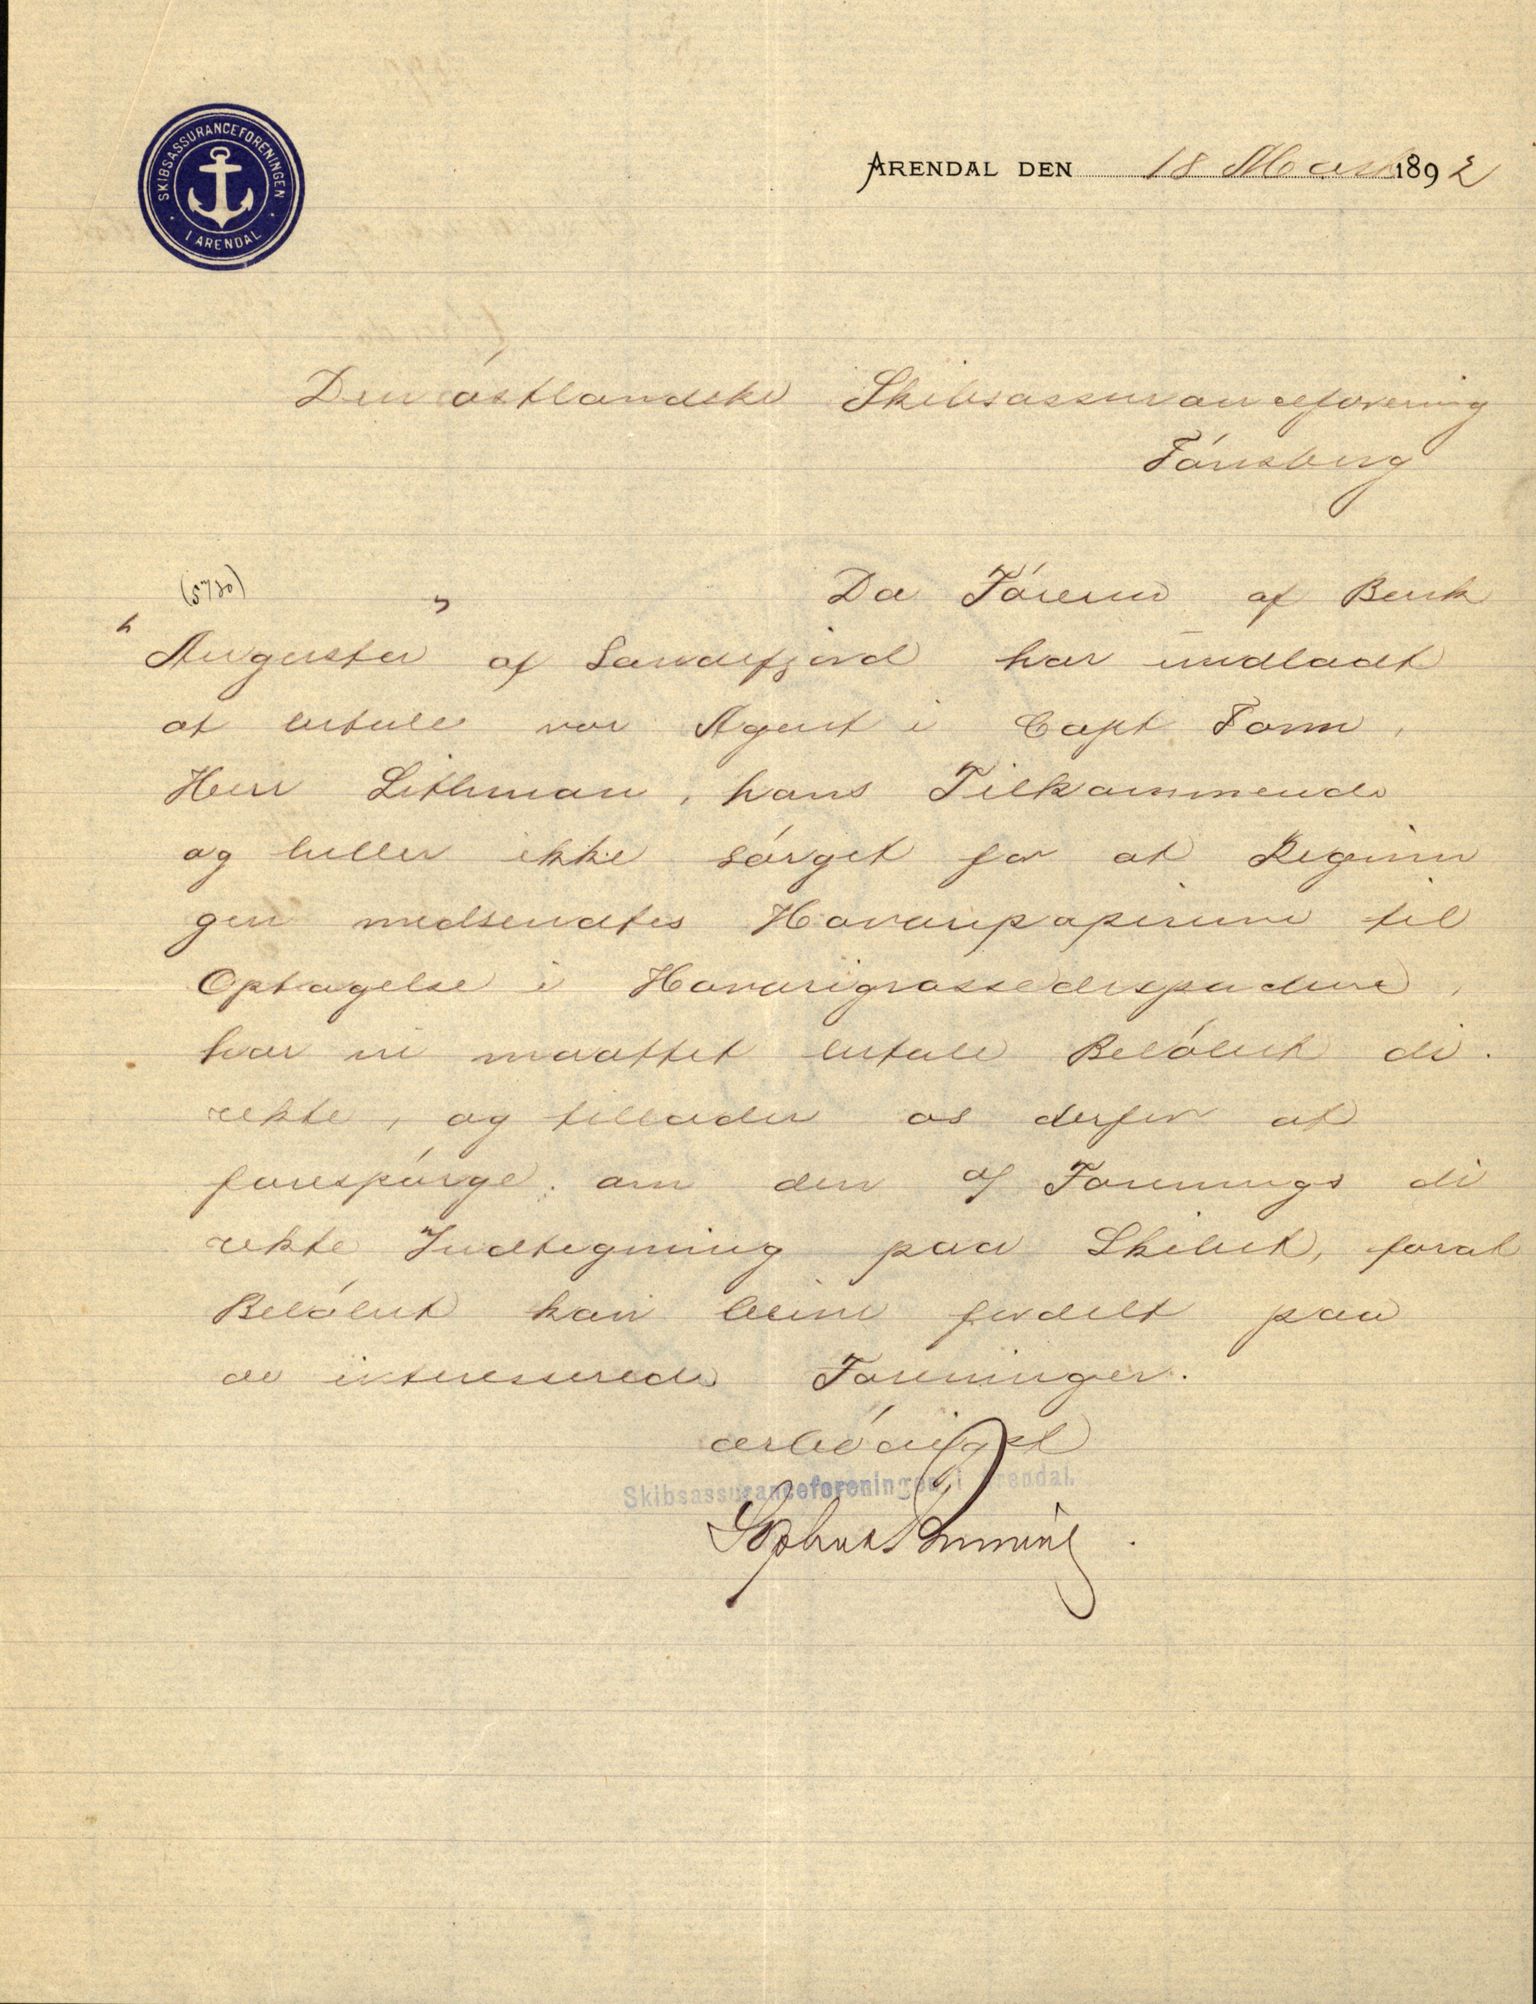 SKIBSASSURANCEFORENINGEN
I ARENDAL
ARENDAL DEN 18 Marts 1892
Den östlandske Skibsassuranceforening
Tönsberg
(5720)
Da Föreren af Bark
"Augusta" af Sandefjord har undladt
at betale vor Agent i Cape Town,
Herr Lithman, hans Tilkommende
og heller ikke sörget for at Regnin
gen medsendtes Havaripapirerne til
Optagelse i Havarigrossedispachen,
har vi maattet betale Belöbet di
rekte, og tillader os derfor at
forespörge om den af Forenings di
rekte Indtegning paa Skibet, forat
Belöbet kan blive fordelt paa
de interesserede Foreninger.
ærbödigst
Skibsassuranceforeningen i Arendal.
Sophus